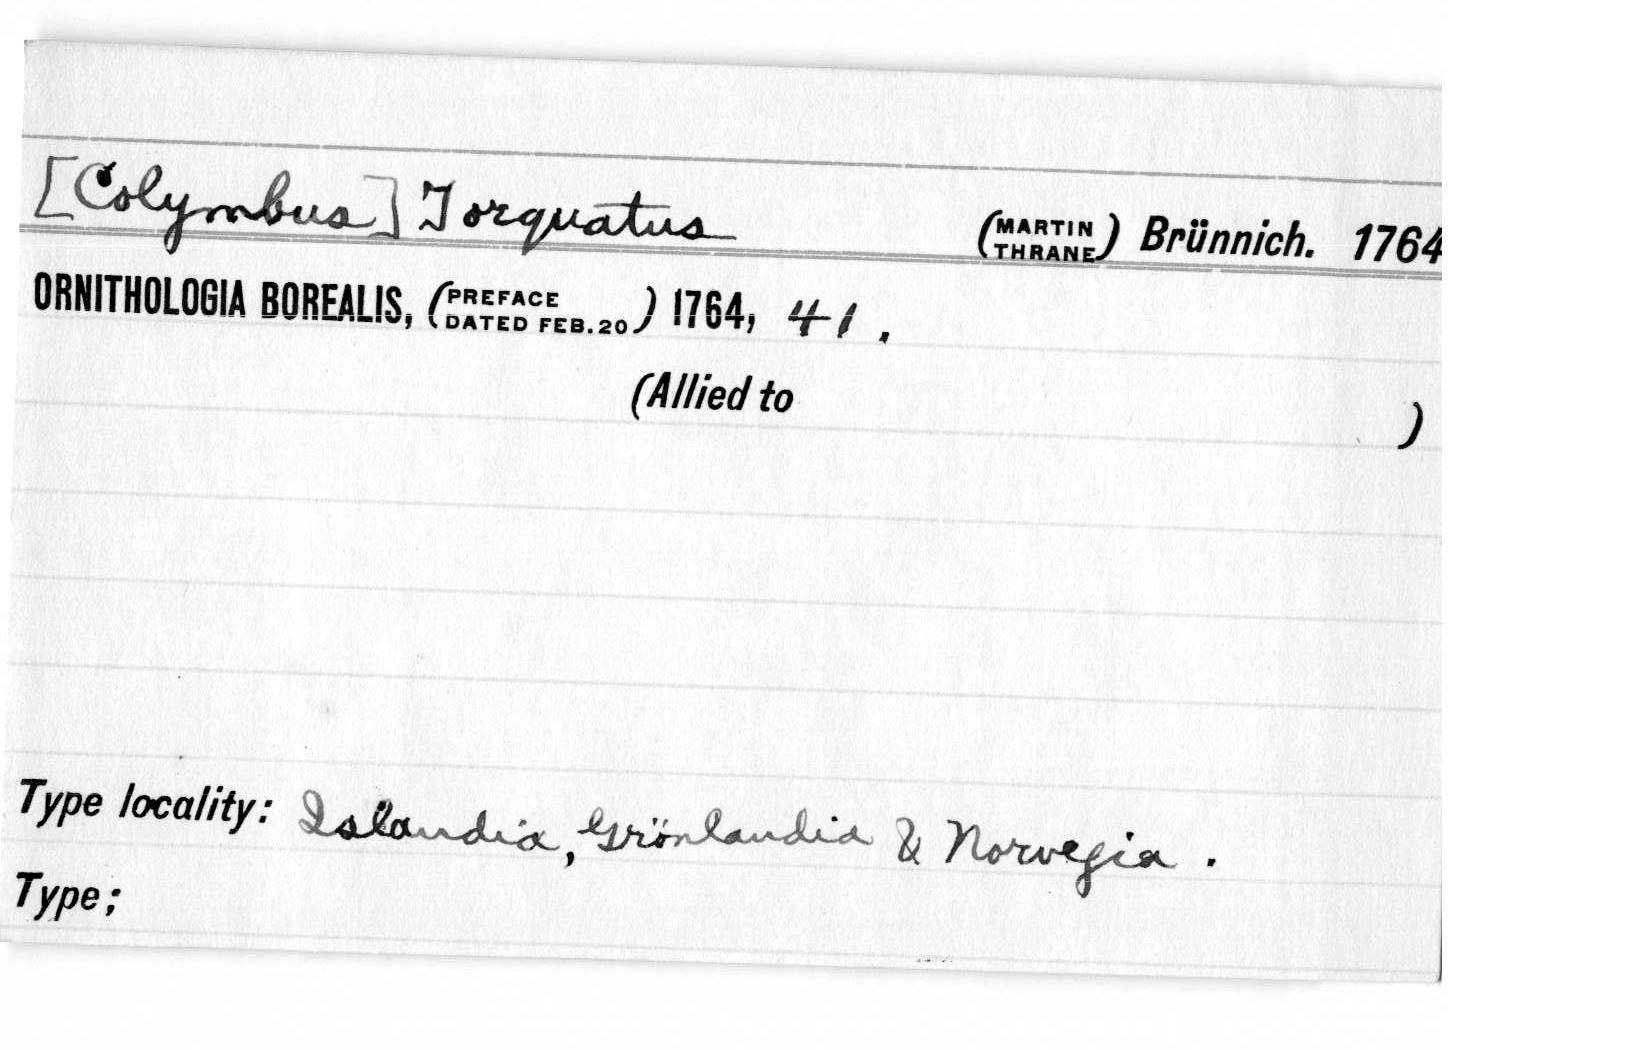 [Colymbus] Torquatus (MARTIN THRANE) Brünnich. 1764
ORNITHOLOGIA BOREALIS, (PREFACE DATED FEB. 20) 1764, 41.
(Allied to )
Type locality: Islandia, Grönlandia & Norvegia.
Type;